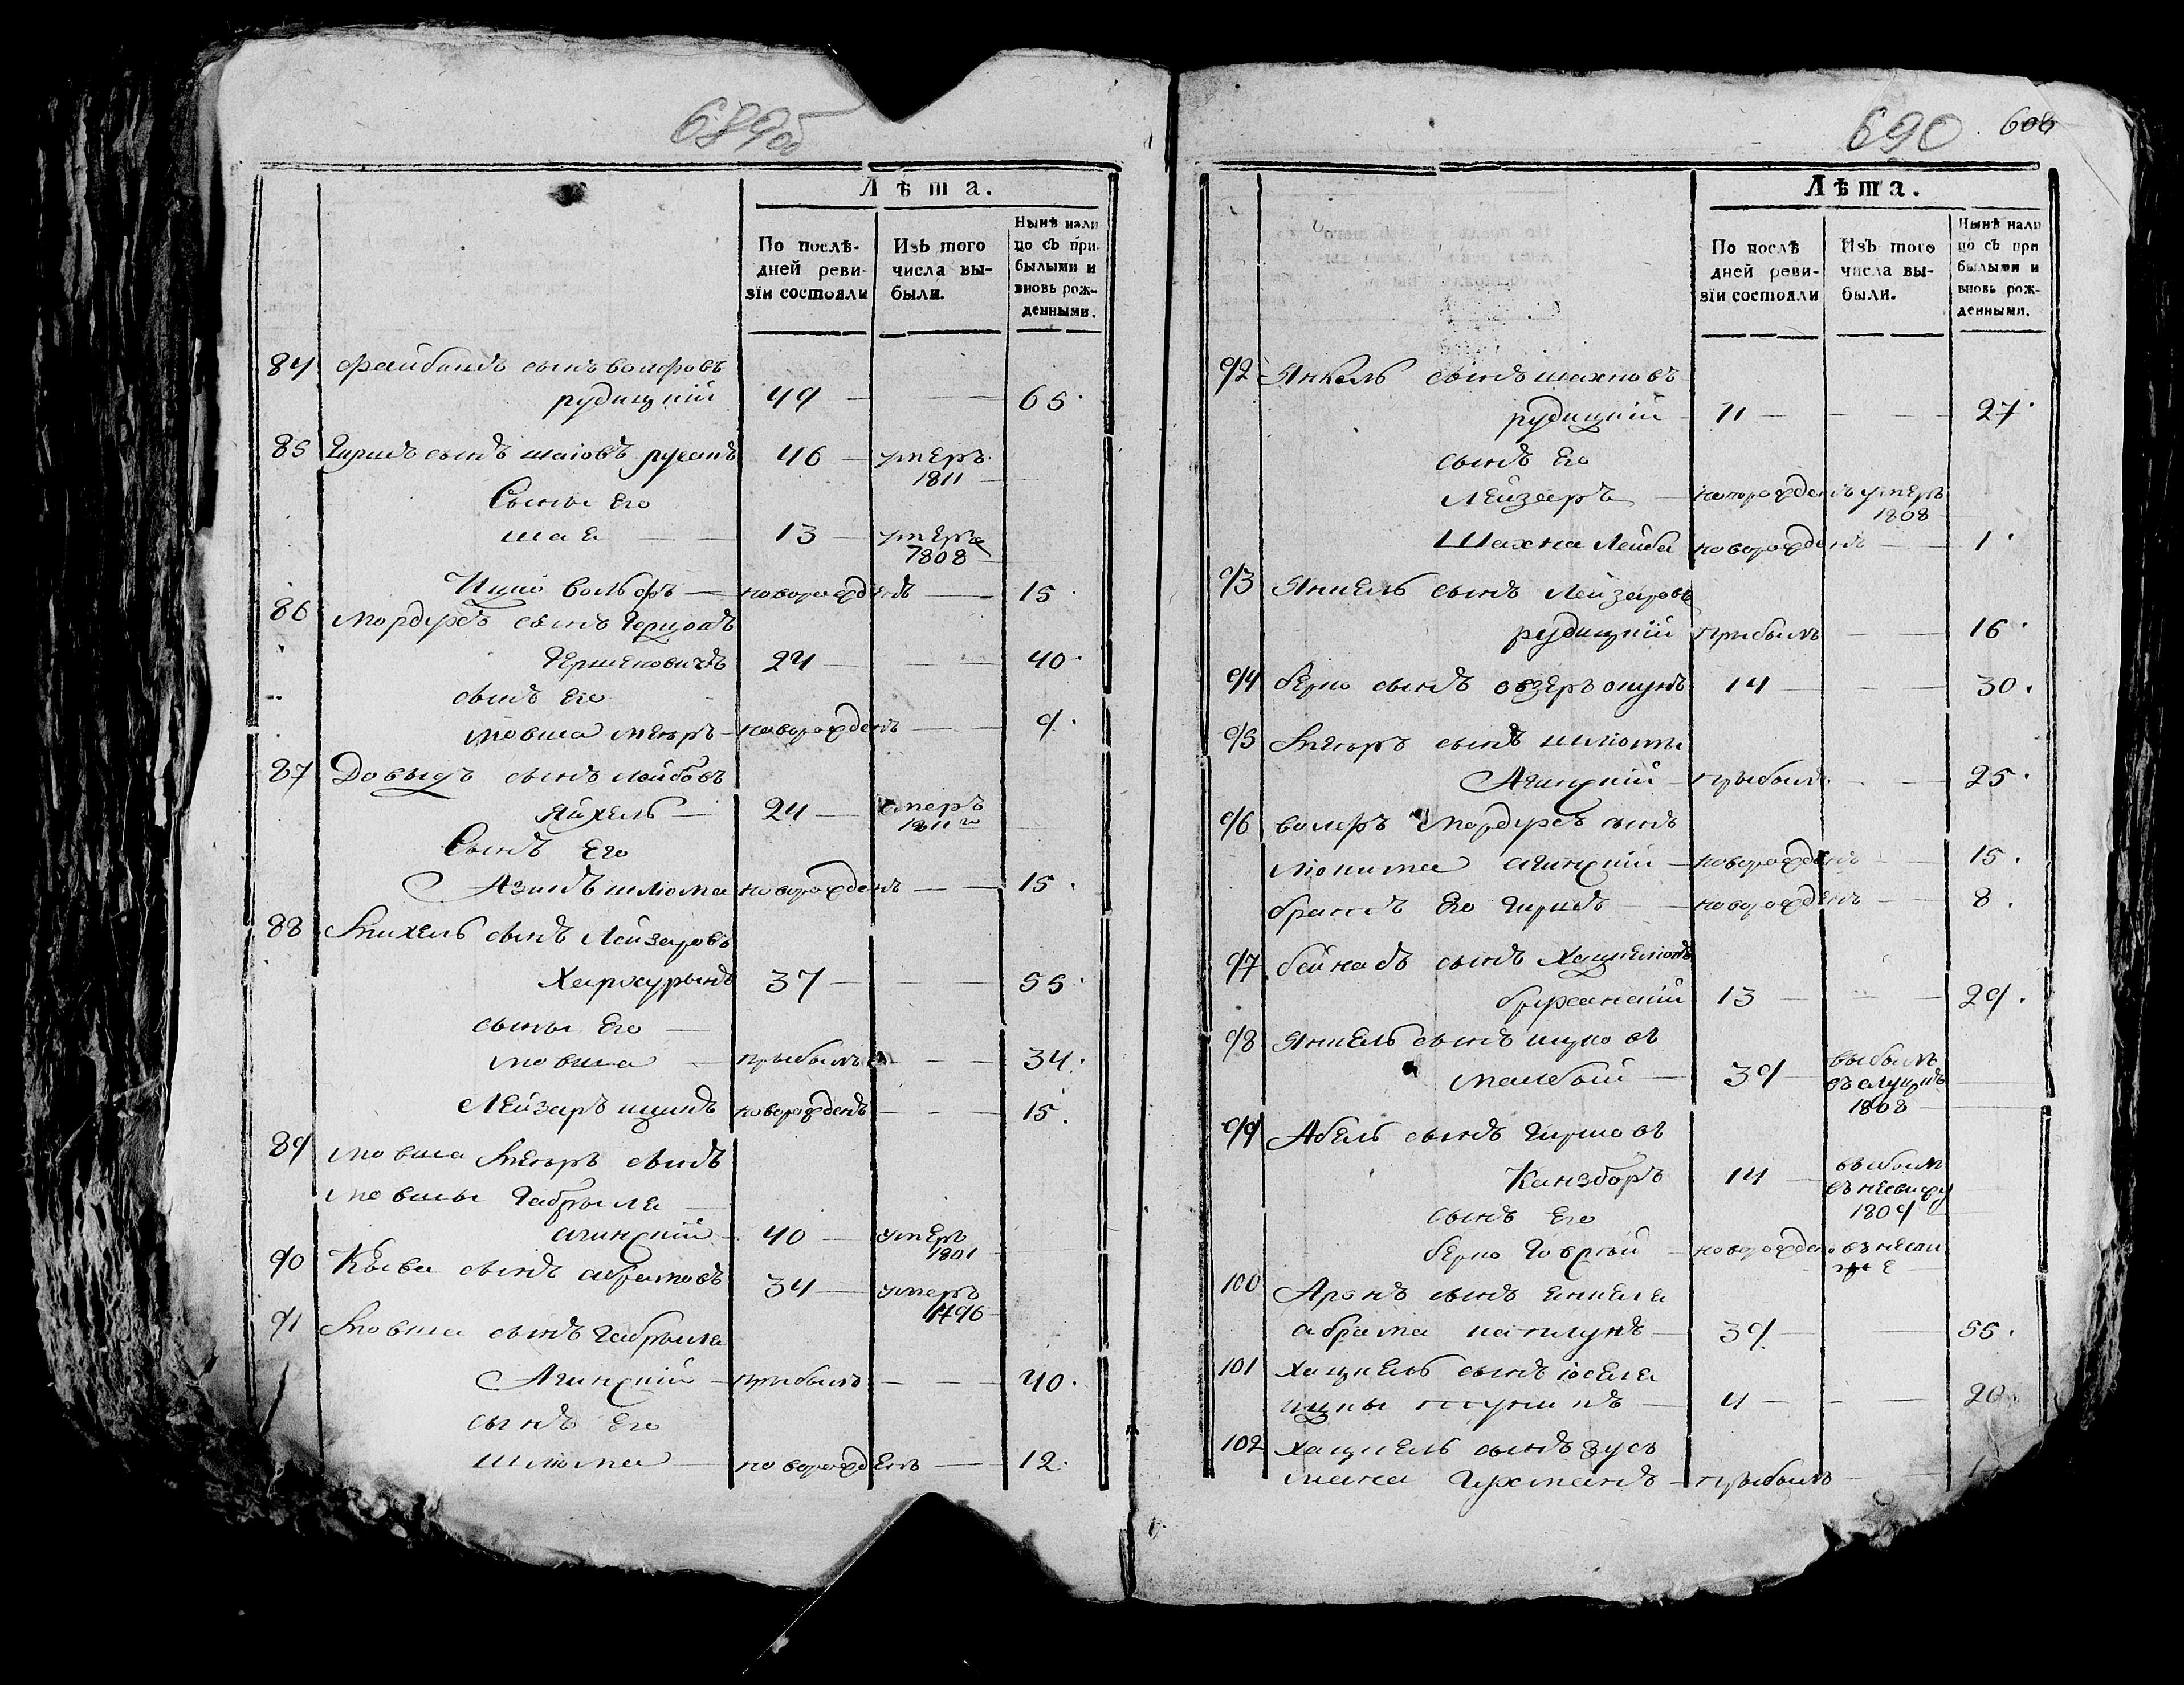 689об
Лѣта.
По послѣ-
дней реви-
зіи состояли
Изъ того
числа вы-
были.
Нынѣ нали
цо съ при-
былыми и
вновь рож-
денными.
84 Файбишъ сынъ вольфовъ
рудицкій 49 — — 65.
85 Гиршъ сынъ шаіовъ 46 — умеръ
1811
Сыны Его
шая — 13 — умеръ
1808
Ицко Вольфъ — новорожденъ — 15
86 Мордухъ сынъ Гершонъ
Гершеновичъ 24 — — 40.
сынъ Его
Мовша мееръ — новорожденъ — 9.
87 Довыдъ сынъ лейбовъ
24 — умеръ
1811 го
Сынъ Его
шлома новорожденъ — 15.
88 Михель сынъ Лейзеровъ
37 — — 55.
сыны Его —
мовша — прыбылъ — 34.
Лейзеръ ицикъ новорожденъ — 15.
89 мовша Мееръ сынъ
мовшы Габрыла
агинский — 40 — умеръ
1801
90 Кыва сынъ абрамовъ
34 — умеръ
1796
91 Мовша сынъ Габрыла
Агинский — прибылъ — 40.
сынъ Его
шлиома — новорожденъ — 12.
690 606
Лѣта.
По послѣ
дней реви-
зіи состояли
Изъ того
числа вы-
были.
Нынѣ нали
цо съ при
былыми и
вновь рож-
денными.
92 Янкель сынъ шахновъ
рудицкій — 11 — — 27.
сынъ Его
Лейзеръ — новорожденъ умеръ
1808
Шахна Лейба новорожденъ — 1.
93 Янкель сынъ Лейзеровъ
рудицкій прибылъ — 16.
94 берко сынъ 14 — — 30.
95 Мееръ сынъ шлиомы
Агинский — прыбылъ — 25.
96 вольфъ Мордухъ сынъ
агинский — новорожденъ — 15.
братъ Его Гиршъ — новорожденъ — 8.
97 бейнасъ сынъ
13 — — 29.
98 Янкель сынъ ицковъ
— 39 — выбылъ
въ слуцкъ
1808
99 Абель сынъ Гиршовъ
Канзборъ 14 — выбылъ
въ несвижъ
1809
сынъ Его
берко — новорожденъ
100 Аронъ сынъ енкеля
абрама — 39 — — 55.
101 хацкель сынъ іоселя
4 — — 20
102 хацкель сынъ зусь
мана — прыбылъ